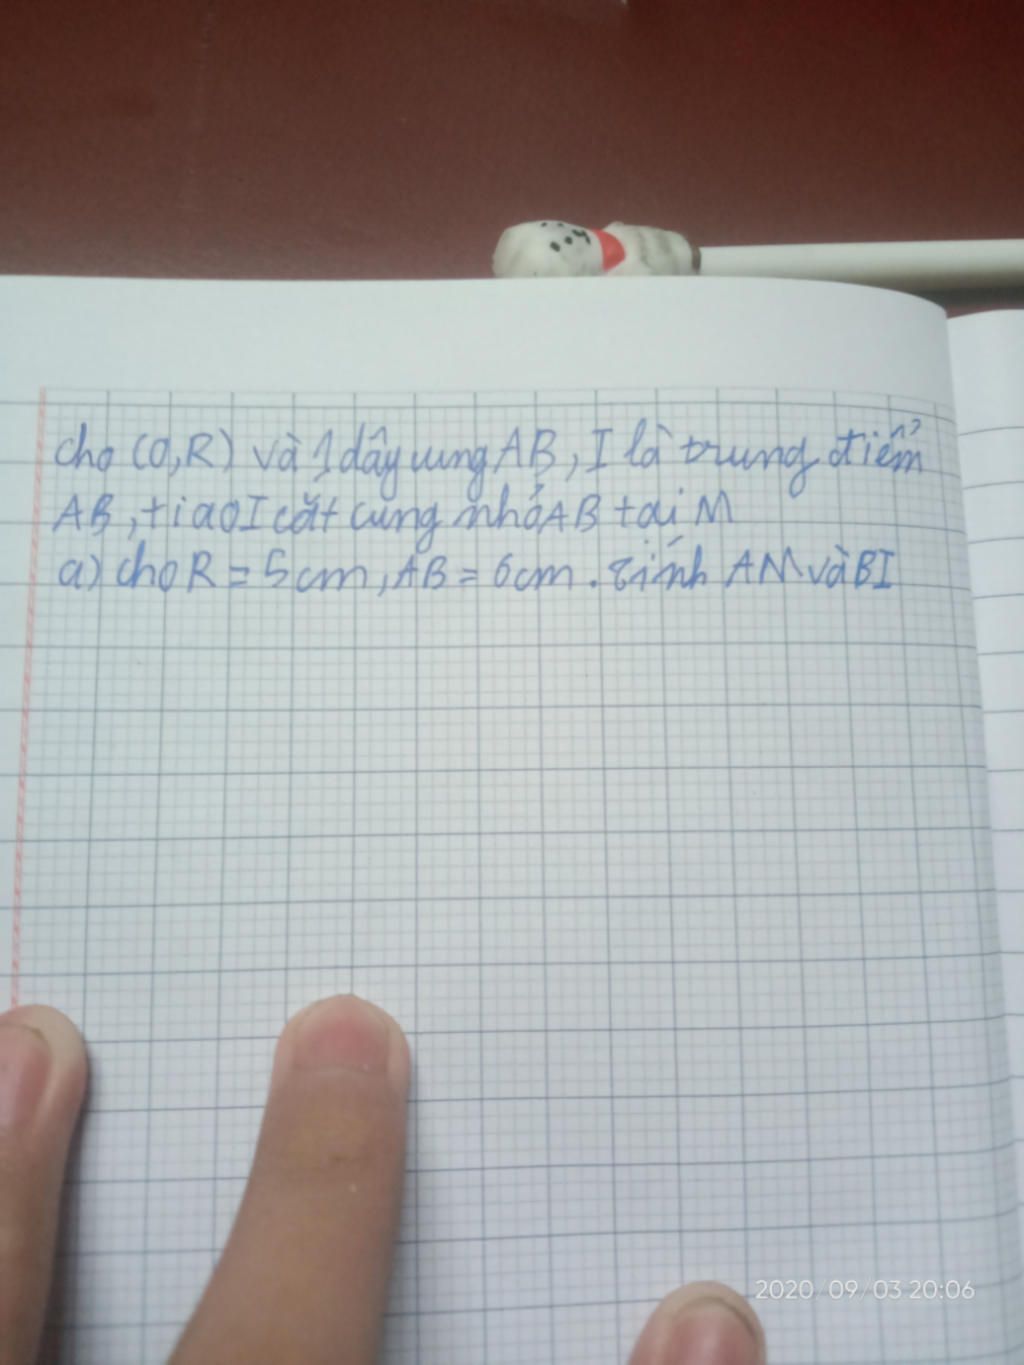 cho (O,R) và 1 dây cung AB, I là trung điểm
AB, tia OI cắt cung nhỏ AB tại M
a) cho R = 5cm, AB = 6cm. tính AM và BI
2020/09/03 20:06